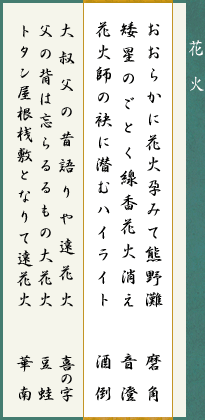 花火
おおらかに花火孕みて熊野灘 磨角
矮星のごとく線香花火消え 音澄
花火師の袂に潜むハイライト 酒倒
大叔父の昔語りや遠花火 喜の字
父の背は忘らるるもの大花火 豆蛙
トタン屋根桟敷となりて遠花火 華南